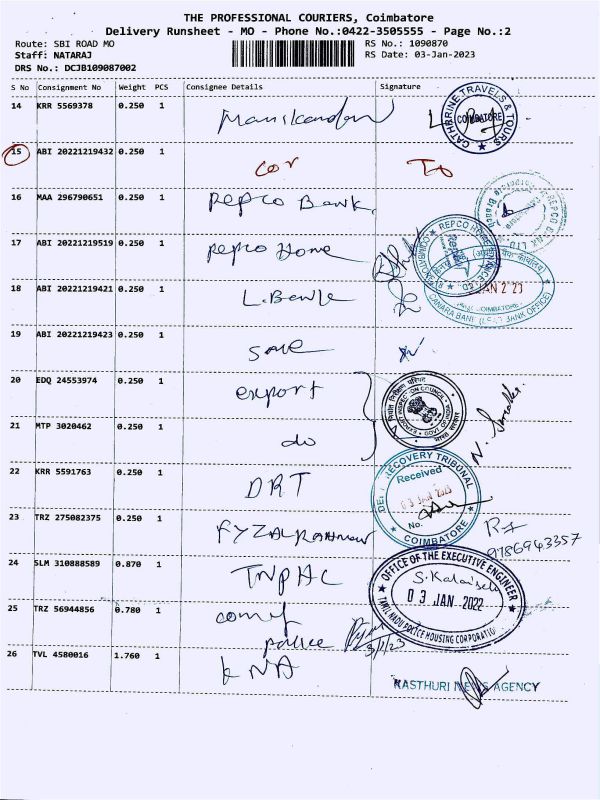 THE PROFESSIONAL COURIERS, Coimbatore
Delivery Runsheet - MO - Phone No.:0422-3505555 - Page No.:2
Route: SBI ROAD MO
RS No.: 1090870
Staff: NATARAJ
RS Date: 03-Jan-2023
DRS No.: DCJB109087002
S No Consignment No Weight PCS Consignee Details Signature
14 KRR 5569378 0.250 1
CATHERINE TRAVELS & TOURS
COIMBATORE
15 ABI 20221219432 0.250 1
Cov To
16 MAA 296790651 0.250 1 Repco Bank
17 ABI 20221219519 0.250 1 Repco Home
COIMBATORE
18 ABI 20221219421 0.250 1 L. Bank
JAN 2 23
COIMBATORE
CANARA BANK (LEAD BANK OFFICE)
19 ABI 20221219423 0.250 1
20 EDQ 24553974 0.250 1 export
EXPORT INSPECTION COUNCIL
GOVT OF INDIA
21 MTP 3020462 0.250 1 do
22 KRR 5591763 0.250 1 DRT
DEBT RECOVERY TRIBUNAL
Received
03 JAN 2023
No.
COIMBATORE
23 TRZ 275082375 0.250 1
9786943357
24 SLM 310888589 0.870 1 TNPHC
OFFICE OF THE EXECUTIVE ENGINEER
03 JAN 2022
TAMIL NADU POLICE HOUSING CORPORATIO
25 TRZ 56944856 0.780 1
police
3/1/23
26 TVL 4580016 1.760 1 KNA
KASTHURI NEWS AGENCY